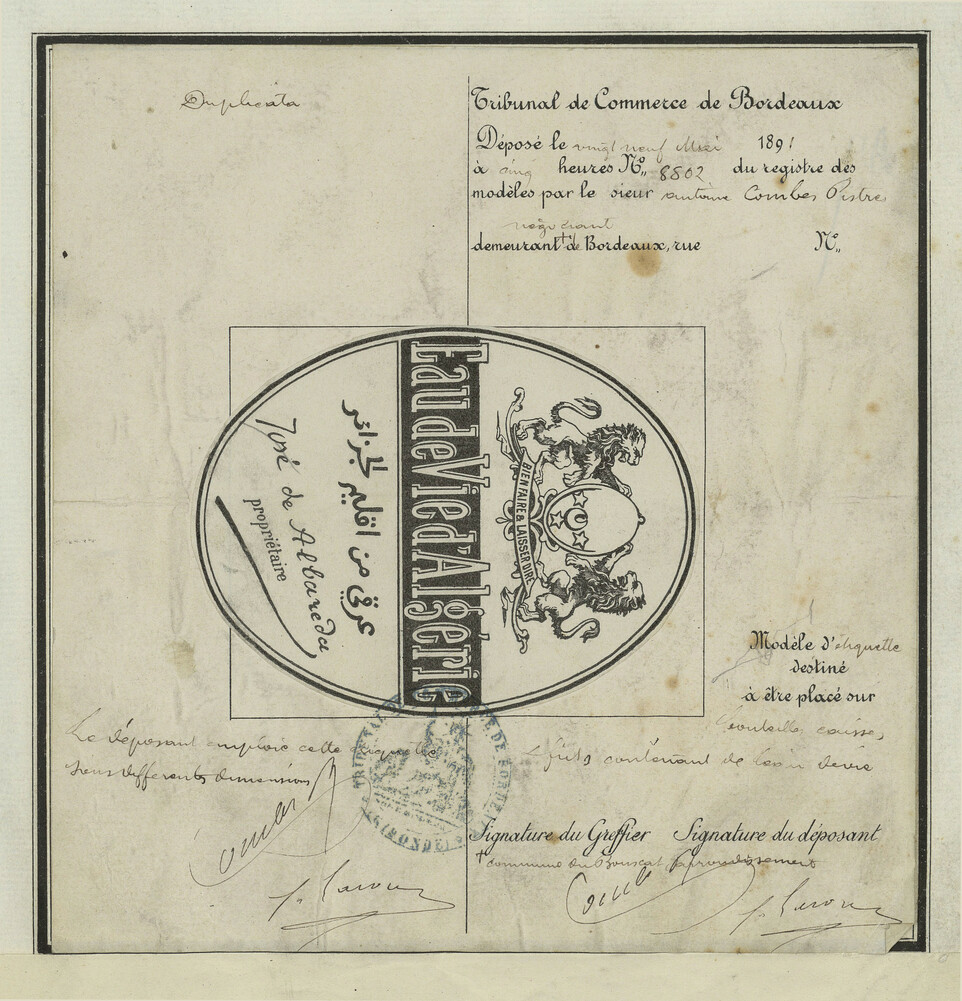 Duplicata
Tribunal de Commerce de Bordeaux
Déposé le vingt neuf Mai 1891
à cinq heures No 8802 du registre des
modèles par le sieur antoine Combes Pistre
négociant
demeurant à Bordeaux, rue No
BIEN FAIRE & LAISSER DIRE
Eau de Vie d'Algérie
عرق من اقلیم لجزائر
José de Albareda
propriétaire
Modèle d'étiquette
destiné
à être placé sur
bouteilles caisses,
& fûts contenant de l'eau de vie
Le déposant emploie cette étiquette
sous différentes dimensions
TRIBUNAL DE COMMERCE DE BORDEAUX
(GIRONDE)
Signature du Greffier Signature du déposant
commune du Bouscat arrondissement
Combes
Combes